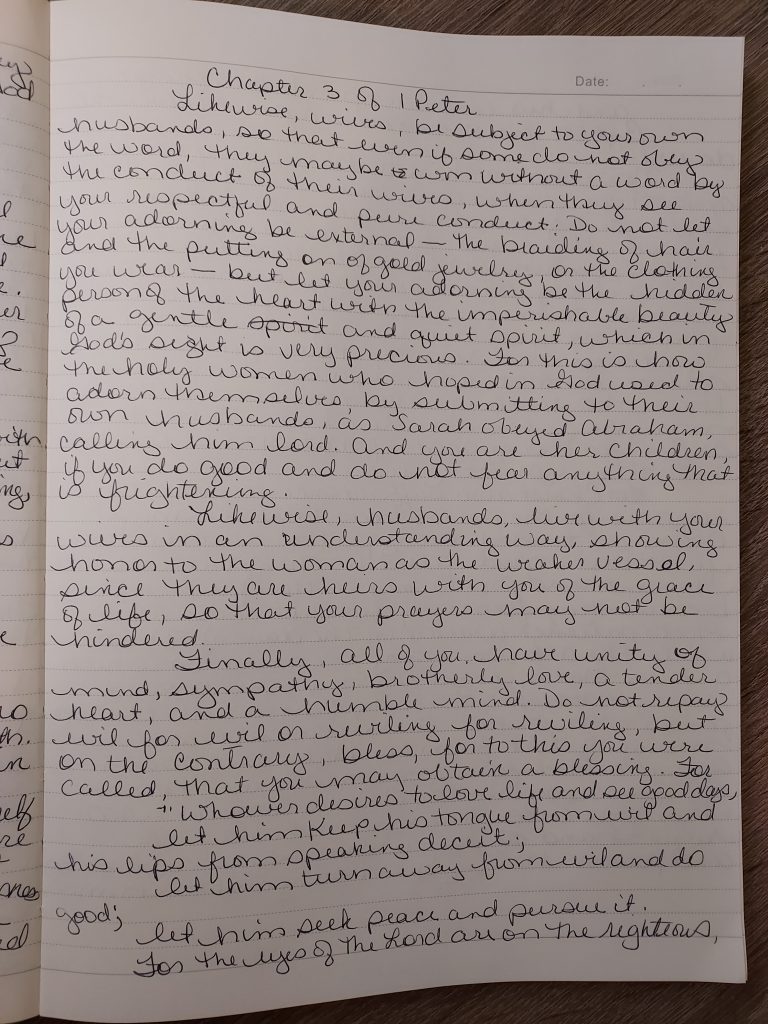 eys
God
Date:
Chapter 3 of 1 Peter
Likewise, wives, be subject to your own
husbands, so that even if some do not obey
the word, they maybe won without a word by
the conduct of their wives, when they see
your respectful and pure conduct. Do not let
your adorning be external — the braiding of hair
and the putting on of gold jewelry, or the clothing
you wear — but let your adorning be the hidden
person of the heart with the imperishable beauty
of a gentle spirit and quiet spirit, which in
God's sight is very precious. For this is how
the holy women who hoped in God used to
adorn themselves, by submitting to their
own husbands, as Sarah obeyed Abraham,
calling him lord. And you are her children,
if you do good and do not fear anything that
is frightening.
Likewise, husbands, live with your
wives in an understanding way, showing
honor to the woman as the weaker vessel,
since they are heirs with you of the grace
of life, so that your prayers may not be
hindered.
Finally, all of you, have unity of
mind, sympathy, brotherly love, a tender
heart, and a humble mind. Do not repay
evil for evil or reviling for reviling, but
on the contrary, bless, for to this you were
called, that you may obtain a blessing. For
"Whoever desires to love life and see good days,
let him keep his tongue from evil and
his lips from speaking deceit;
let him turn away from evil and do
good;
let him seek peace and pursue it.
For the eyes of the Lord are on the righteous,